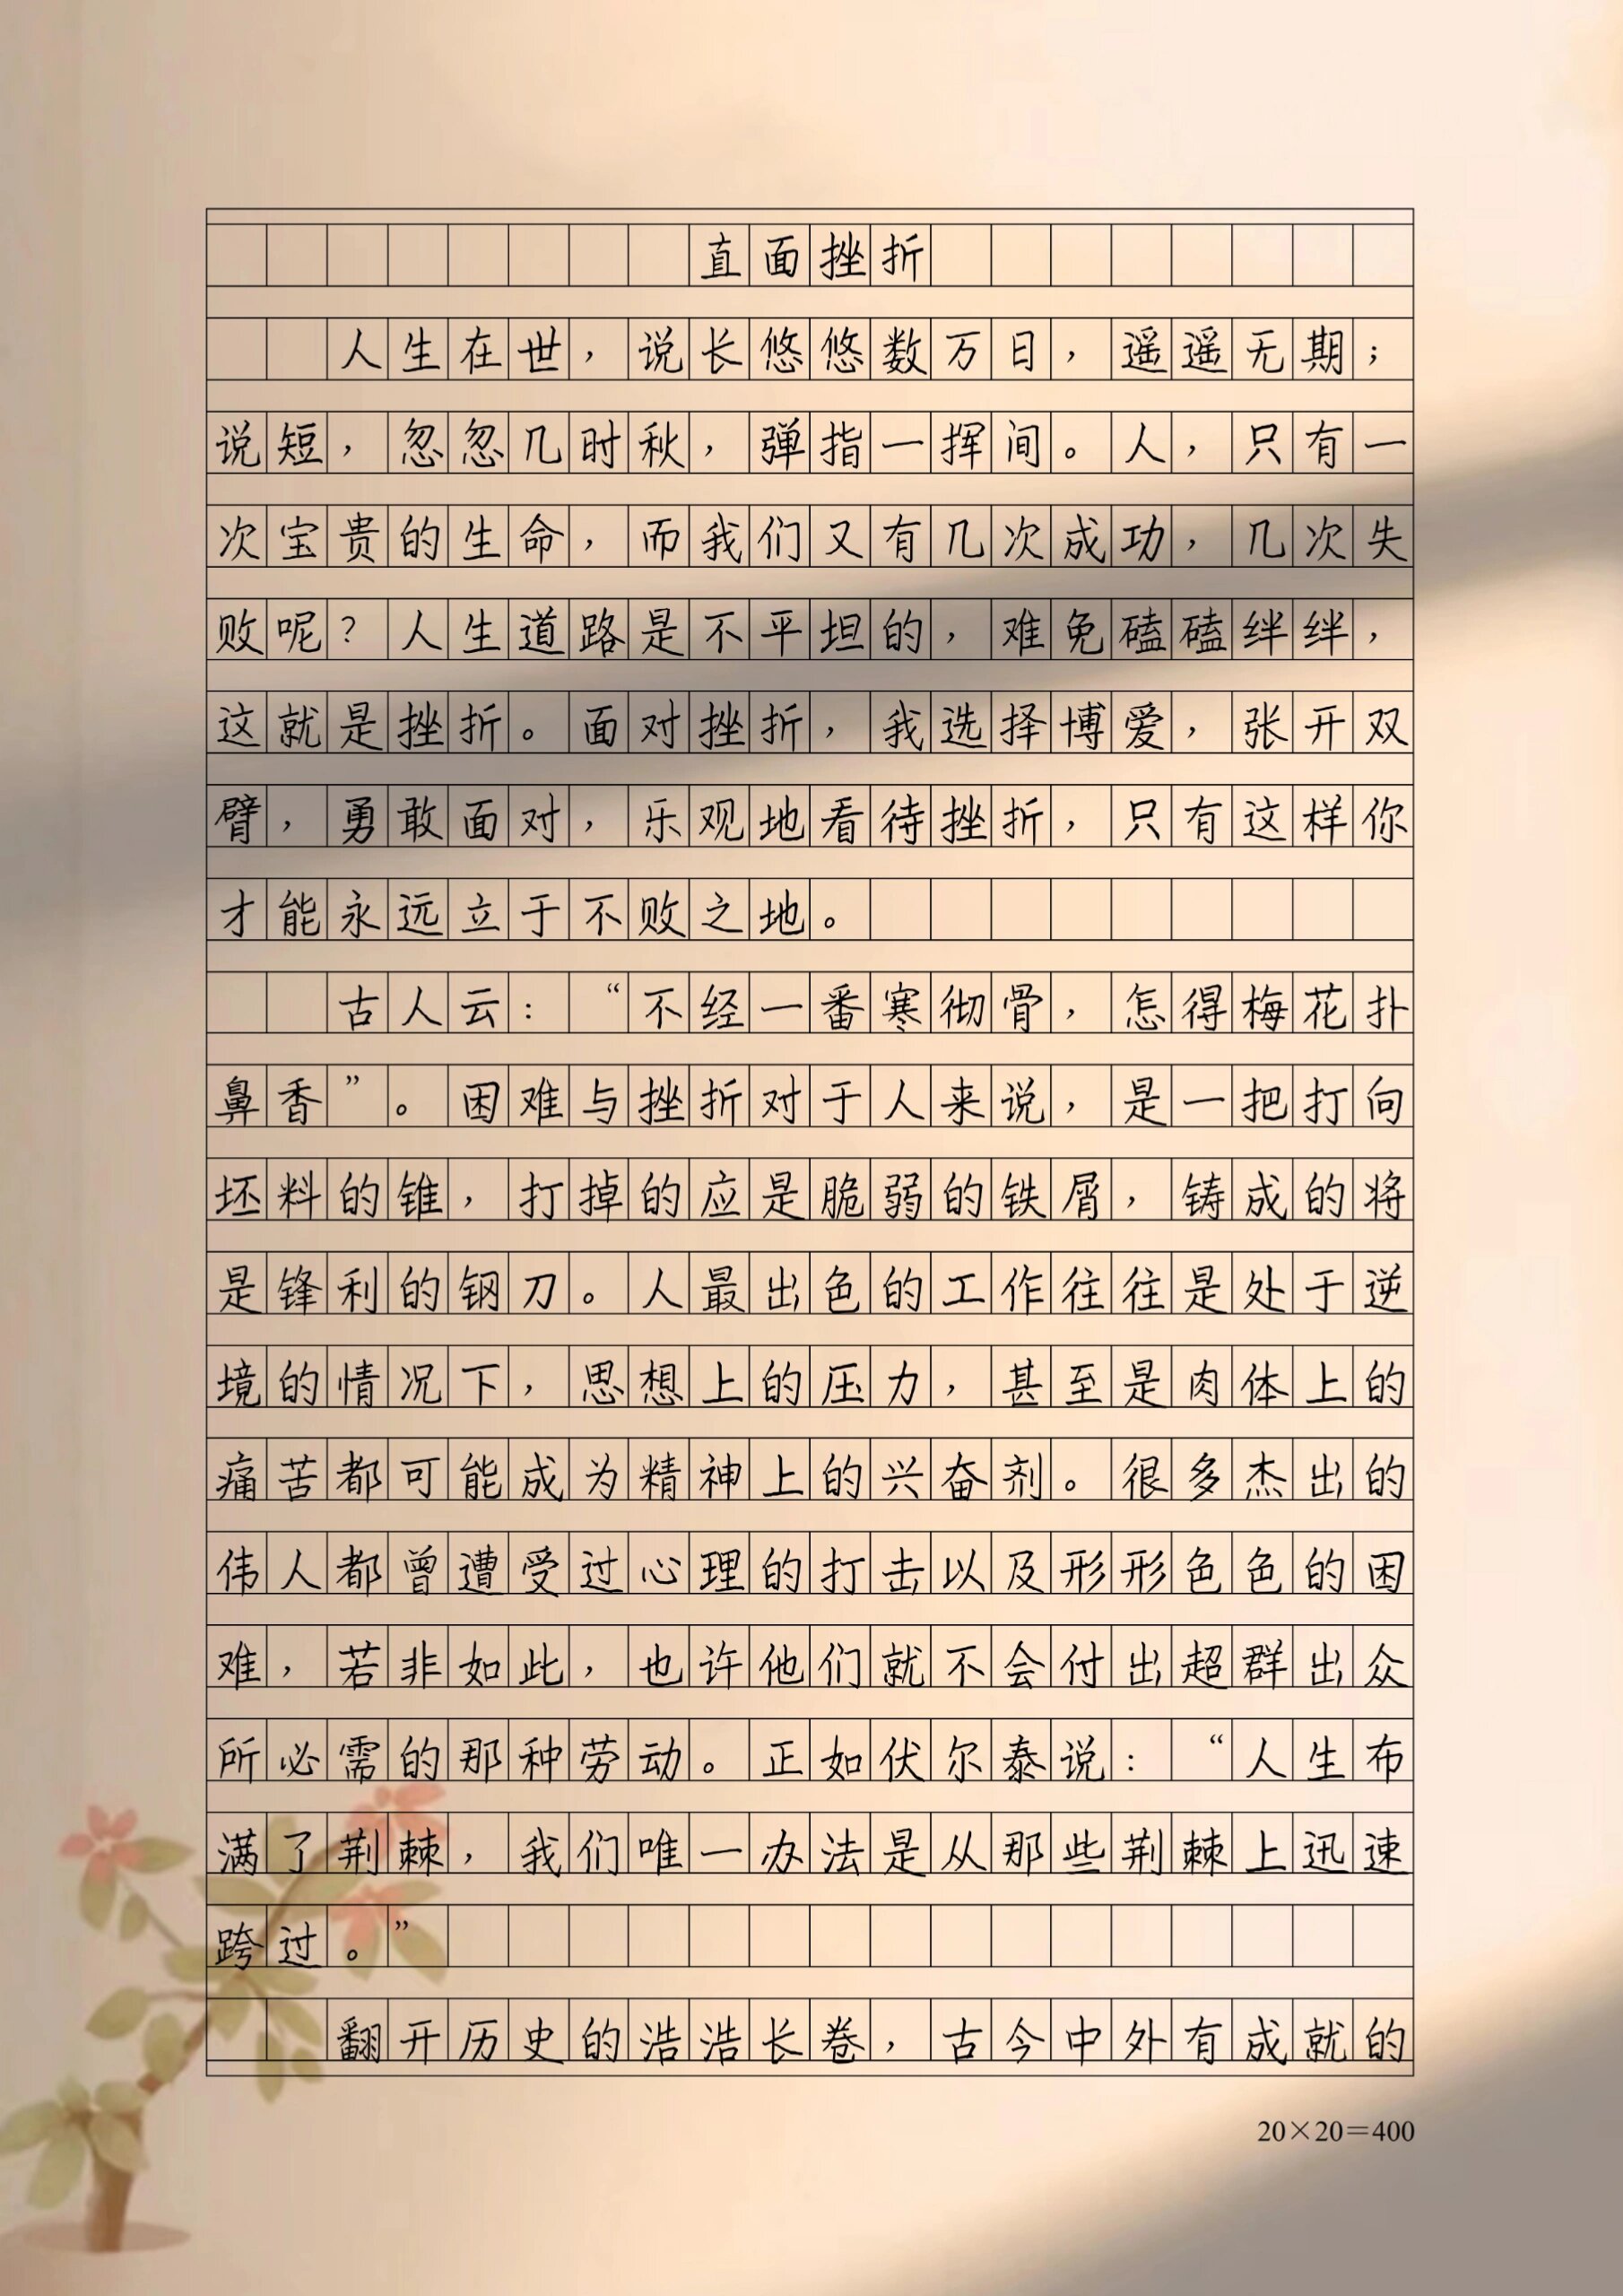 直面挫折
人生在世，说长悠悠数万日，遥遥无期；
说短，忽忽几时秋，弹指一挥间。人，只有一
次宝贵的生命，而我们又有几次成功，几次失
败呢？人生道路是不平坦的，难免磕磕绊绊，
这就是挫折。面对挫折，我选择博爱，张开双
臂，勇敢面对，乐观地看待挫折，只有这样你
才能永远立于不败之地。
古人云：“不经一番寒彻骨，怎得梅花扑
鼻香”。困难与挫折对于人来说，是一把打向
坯料的锥，打掉的应是脆弱的铁屑，铸成的将
是锋利的钢刀。人最出色的工作往往是处于逆
境的情况下，思想上的压力，甚至是肉体上的
痛苦都可能成为精神上的兴奋剂。很多杰出的
伟人都曾遭受过心理的打击以及形形色色的困
难，若非如此，也许他们就不会付出超群出众
所必需的那种劳动。正如伏尔泰说：“人生布
满了荆棘，我们唯一办法是从那些荆棘上迅速
跨过。”
翻开历史的浩浩长卷，古今中外有成就的
20×20＝400